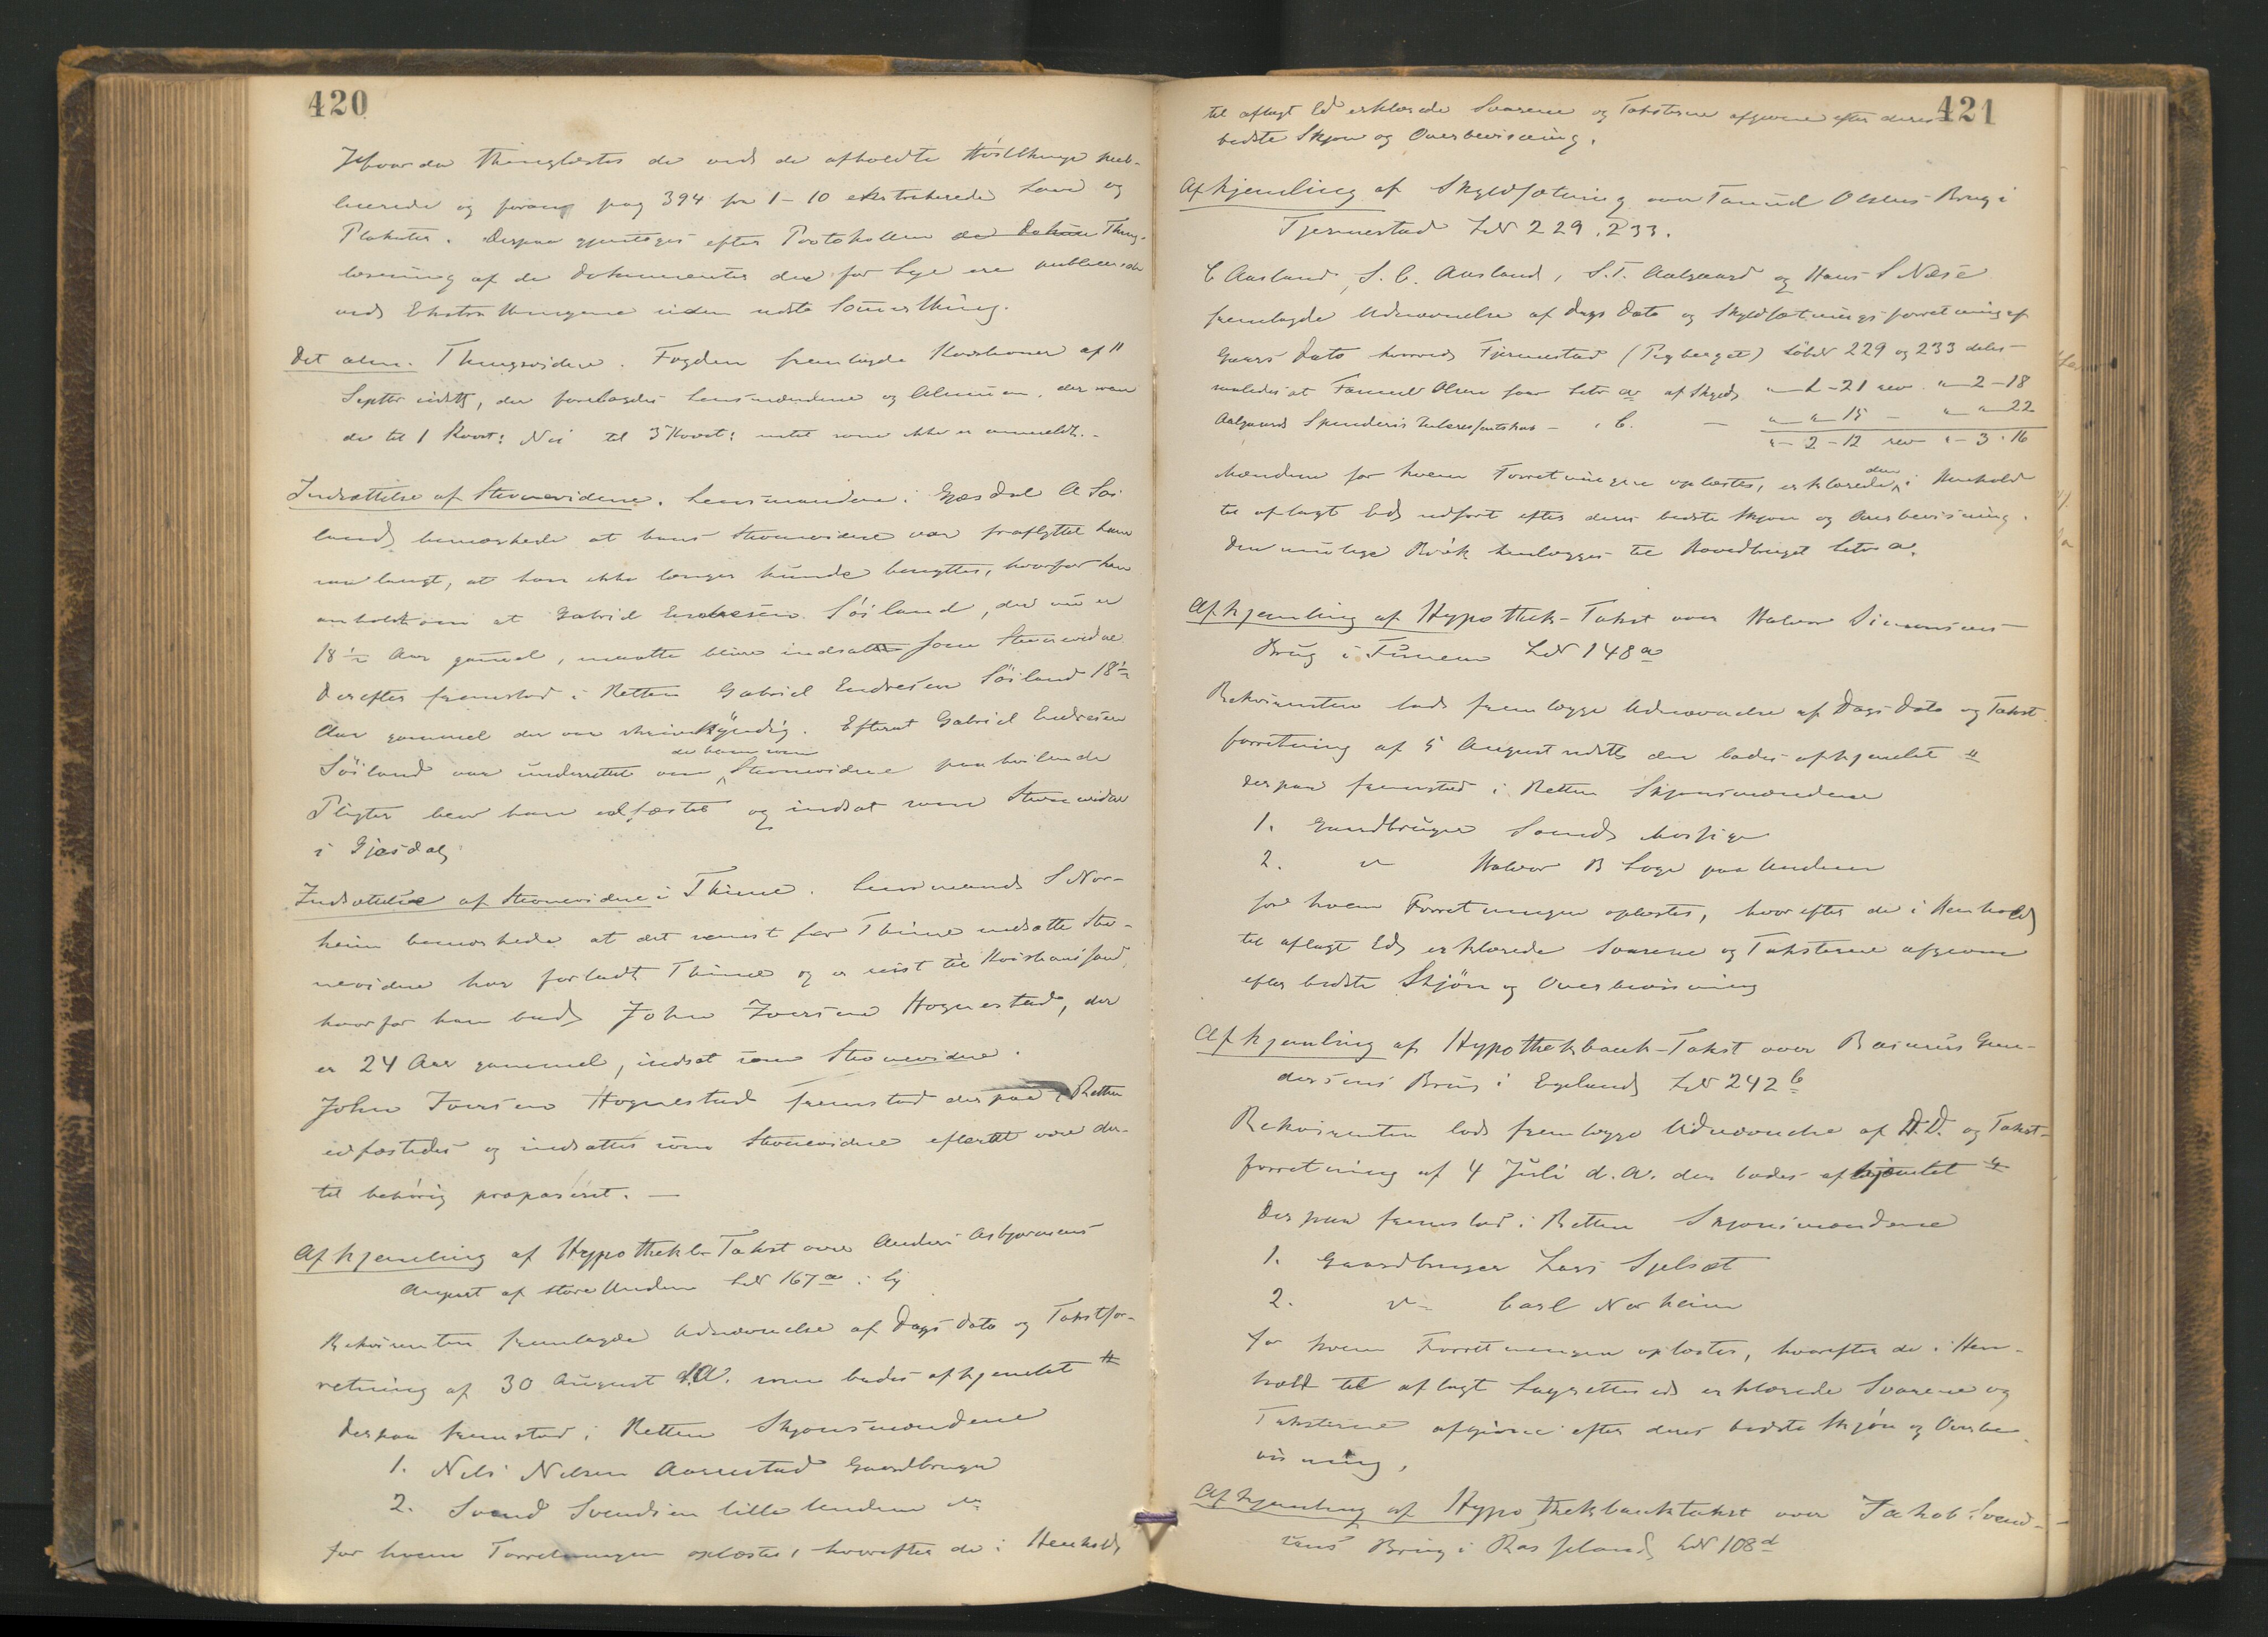 420
Hvorda thinglæstes de ved de afholdte Høstthinge pub-
licerede og foran pag 394 fra 1-10 ekstraherede Love og
Plakater. Derpaa gjentoges efter Protokollen Thing-
læsning af de Dokumenter der før Lye ere publicerede
ved Ekstrathingene siden sidste Sommerthing.
Det alm. Thingsvidne. Fogden fremlagde Kvæstioner af 11
Septbr sidstl, der forelagdes Lensmændene og Almuen, der svare
de til 1 Kvæst: Nei til 3 Kvæst: intet som ikke er anmeldt.-
Indsættelse af Stevnevidne. Lensmanden i Gjesdal A Søi
land bemærkede at hans Stevnevidne var fraflyttet ham
saa langt, at han ikke længer kunde benyttes, hvorfor han
anholdt om at Gabriel Endresen Söiland, der nu er
18½ Aar gammel, maatte blive indsat som Stevnevidne
Derefter fremstod i Retten Gabriel Endresen Söiland 18½
Aar gammel der var skrivekyndig. Efterat Gabriel Endresen
Söiland var underrettet om de ham som Stevnevidne paahvilende
Pligter blev han edfæstet og indsat som Stevnevidne
i Gjesdal
Indsættelse af Stevnevidne i Thime. Lensmand S Nor-
heim bemærkede at det senest for Thime indsatte Stev-
nevidne har forladt Thime og er reist til Kristianssand,
hvorfor han bad John Iversen Hognestad, der
er 24 Aar gammel, indsat som Stevnevidne.
John Iversen Hognestad fremstod derpaa i Retten
edfæstedes og indsattes som Stevnevidne efterat være der-
til behørig præpareret. —
Afhjemling af Hypothekb. Takst over Anders Asbjørnsens
Anpart af store Undem LN 167 a i Ly
Rekvirenten fremlagde Udnævnelse af Dags Dato og Takstfor-
retning af 30 August d.A. som bades afhjemlet #
Derpaa fremstod i Retten Skjønsmændene
1. Nels Nelsen Aarrestad Gaardbruger
2. Svend Svendsen lille Undem do
for hvem Forretningen oplæstes, hvorefter de i Henhold
421
til aflagt Ed erklærede Svarene og Taksterne afgivne efter deres
bedste Skjøn og Overbevisning.
Afhjemling af Skyldsætning over Tønnes Olsens Brug i
Fjermestad LN 229. 233.
C Aasland, S. C. Aasland, S. T. Aalgaard og Hans S Næse
fremlagde Udnævnelse af Dags Dato og Skyldsætningsforretning af
Gaars Dato hvorved Fjermestad (Pigberget) LøbN 229 og 233 deles
saaledes at Tønnes Olsen faar Litr a af Skyld " 1 - 21 rev. " 2 - 18
Aalgaards Spinderis Interessentskab - " b. — " " 15 - " " 22
" - 2 - 12 rev " - 3 . 16
Mændene for hvem Forretningen oplæstes, erklærede den i Henhold
til aflagt Ed udført efter deres bedste Skjøn og Overbevisning.
Den ulige Brøk henlægges til Hovedbruget Litr a.
Afhjemling af Hypothek-Takst over Halvor Simonsens
Brug i Tunem LN 148 a
Rekvirenten lod fremlægge Udnævnelse af Dags Dato og Takst
forretning af 5 August sidstl der bades afhjemlet #
Derpaa fremstod i Retten Skjønsmændene
1. Gaardbruger Svend Mossige
2. do Halvor B Loge paa Undem
for hvem Forretningen oplæstes, hvorefter de i Henhold
til aflagt Ed erklærede Svarene og Taksterne afgivne
efter bedste Skjön og Overbevisning
Afhjemling af Hypothekbank-Takst over Rasmus Gun-
dersens Brug i Egeland LN 242 b
Rekvirenten lod fremlægge Udnævnelse af D.D. og Takst-
forretning af 4 Juli d. A. der bades afhjemlet #
Derpaa fremstod i Retten Skjønsmændene
1. Gaardbruger Lars Sjelset
2. do Carl Norheim
for hvem Forretningen oplæstes, hvorefter de i Hen-
hold til aflagt Lagrettesed erklærede Svarene og
Taksterne afgivne efter deres bedste Skjøn og Overbe
visning.
Afhjemling af Hypothekbanktakst over Jakob Svend-
sens Brug i Rosseland LN 108 d